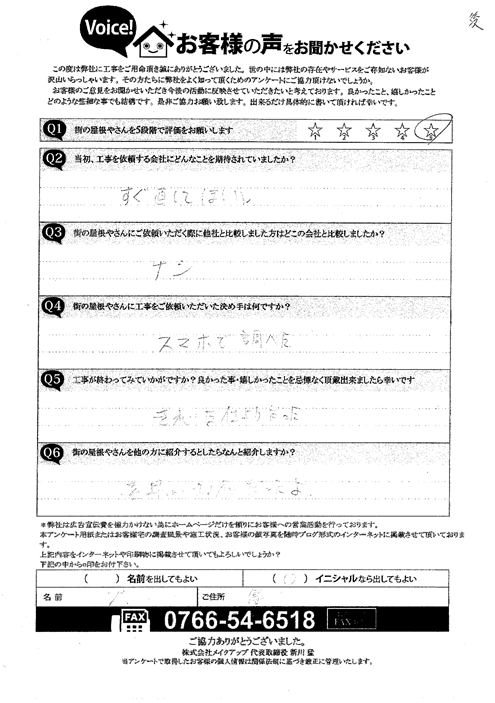 Voice!
お客様の声をお聞かせください
この度は弊社に工事をご用命頂き誠にありがとうございました。世の中には弊社の存在やサービスをご存知ないお客様が
沢山いらっしゃいます。その方たちに弊社をよく知って頂くためのアンケートにご協力頂けないでしょうか。
お客様のご意見をお聞かせいただき今後の活動に反映させていただきたいと考えております。良かったこと、嬉しかったこと
どのような些細な事でも結構です。是非ご協力お願い致します。出来るだけ具体的に書いて頂ければ幸いです。
Q1 街の屋根やさんを5段階で評価をお願いします
1 2 3 4 5
Q2 当初、工事を依頼する会社にどんなことを期待されていましたか?
すぐ直してほしい
Q3 街の屋根やさんにご依頼いただく際に他社と比較しました方はどこの会社と比較しましたか?
ナシ
Q4 街の屋根やさんに工事をご依頼いただいた決め手は何ですか?
スマホで調べた
Q5 工事が終わってみていかがですか?良かった事・嬉しかったことを忌憚なく頂戴出来ましたら幸いです
Q6 街の屋根やさんを他の方に紹介するとしたらなんと紹介しますか?
※弊社は広告宣伝費を極力かけない為にホームページだけを頼りにお客様への営業活動を行っております。
本アンケート用紙またはお客様宅の調査風景や施工状況、お客様の顔写真を随時ブログ形式のインターネットに掲載させて頂いております。
上記内容をインターネットや印刷物に掲載させて頂いてもよろしいでしょうか?
下記の中から○印をお付け下さい。
( ) 名前を出してもよい (○) イニシャルなら出してもよい
名前 ご住所
FAX 0766-54-6518
ご協力ありがとうございました。
株式会社メイクアップ 代表取締役 新川 猛
※アンケートで取得したお客様の個人情報は関係法規に基づき厳正に管理いたします。